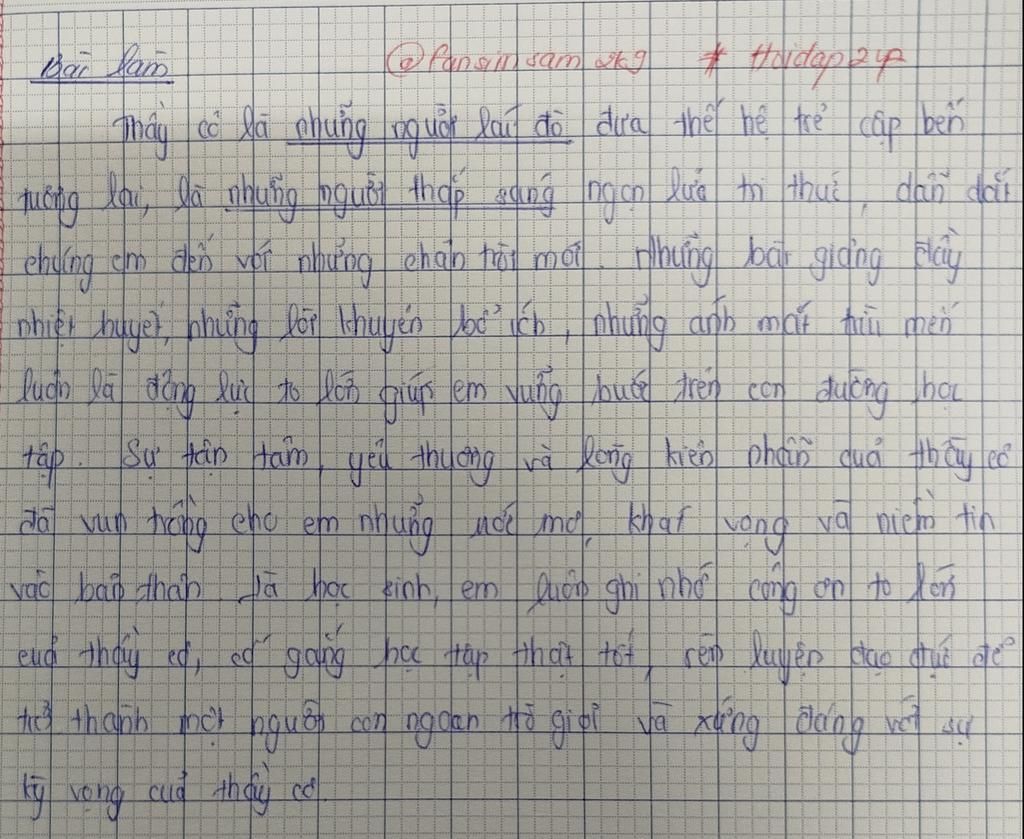 Bài làm @fansinsam2kg # Hoidap247
Thầy cô là những người lái đò đưa thế hệ trẻ cập bến
tương lai, là những người thắp sáng ngọn lửa tri thức, dẫn dắt
chúng em đến với những chân trời mới. Những bài giảng đầy
nhiệt huyết, những lời khuyên bổ ích, những ánh mắt trìu mến
luôn là động lực to lớn giúp em vững bước trên con đường học
tập. Sự tận tâm, yêu thương và lòng kiên nhẫn của thầy cô
đã vun trồng cho em những ước mơ, khát vọng và niềm tin
vào bản thân. Là học sinh, em luôn ghi nhớ công ơn to lớn
của thầy cô, cố gắng học tập thật tốt, rèn luyện đạo đức để
trở thành một người con ngoan trò giỏi và xứng đáng với sự
kỳ vọng của thầy cô.